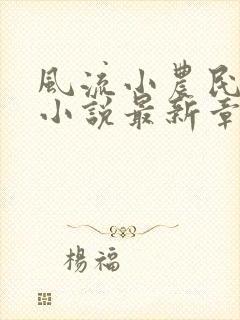 風流小農民
小說最新章
楊福